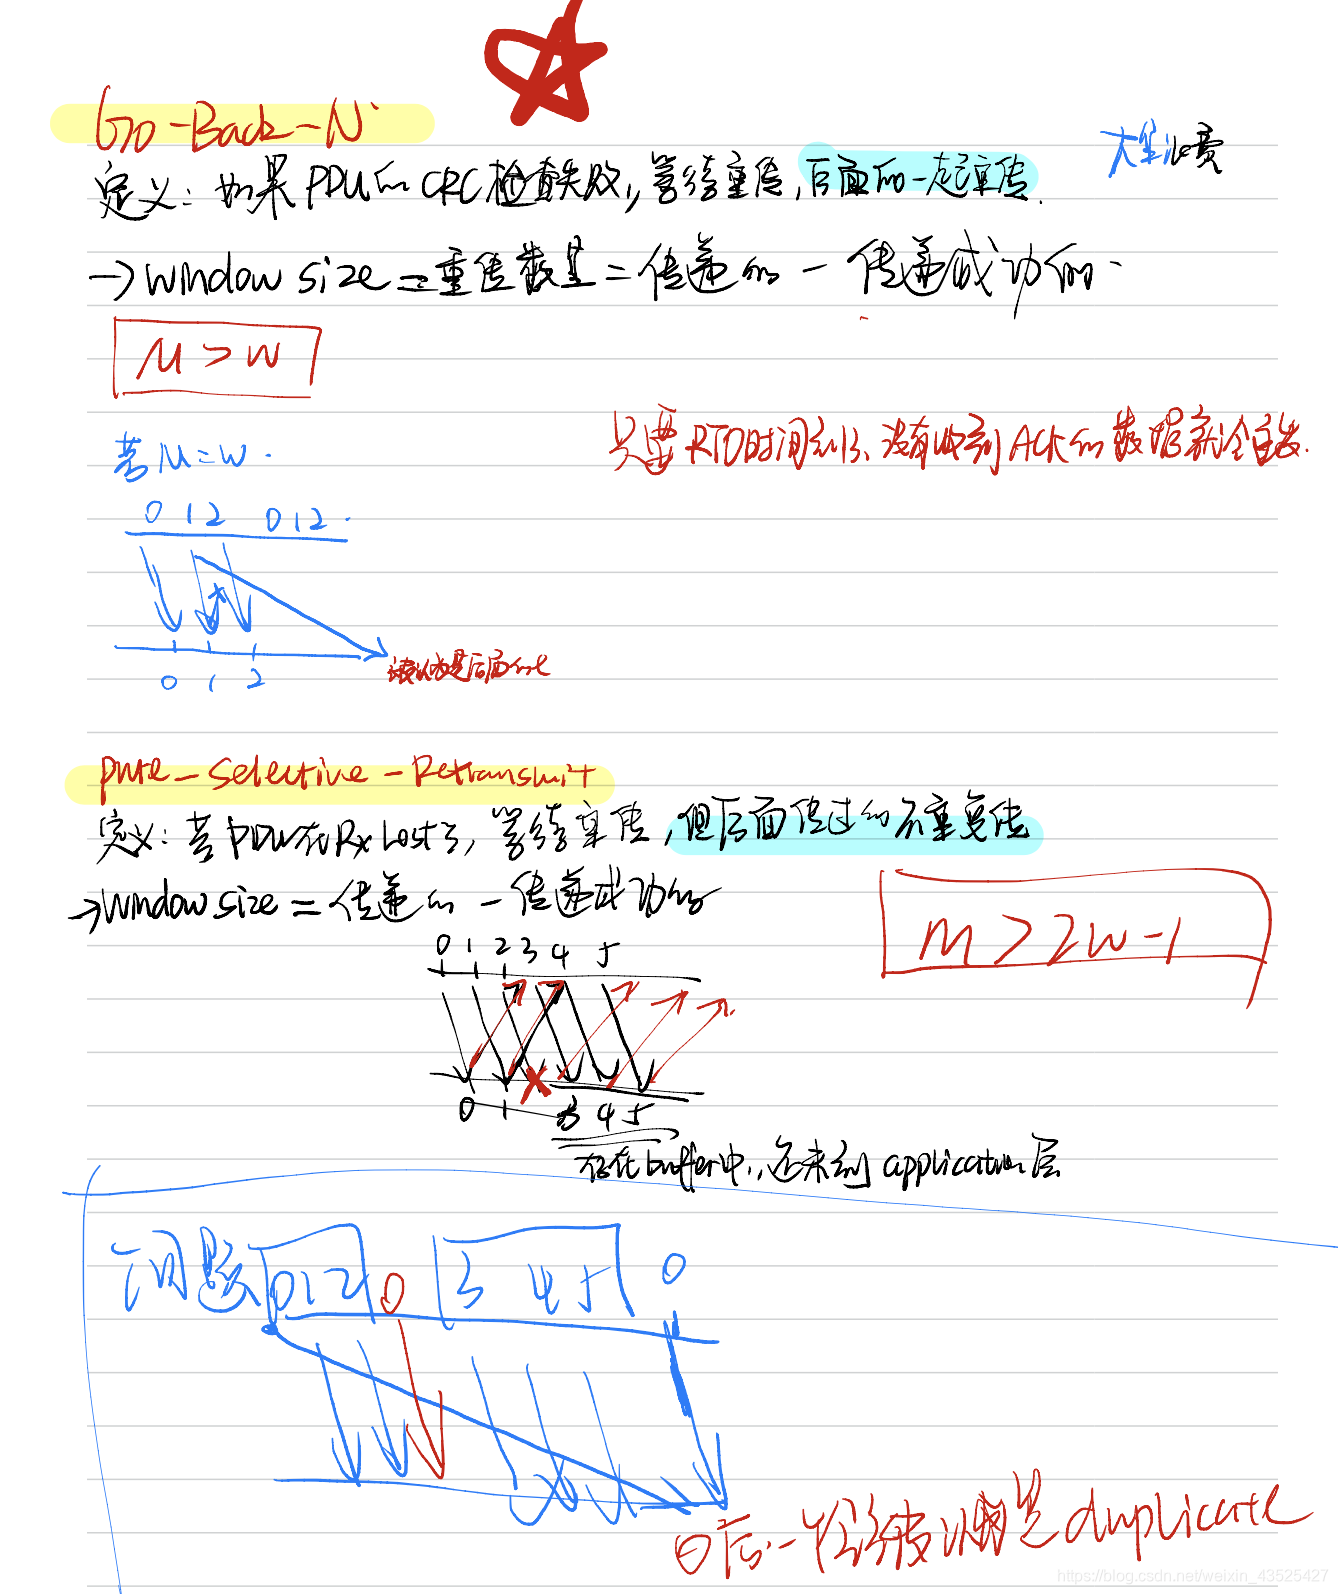 Go-Back-N
大量浪费
定义：如果PDU的CRC检查失败，等待重传，后面的一起重传.
→window size = 重传数量 = 传递的 - 传递成功的
M > W
若M=W.
只要RTD时间到了、没有收到ACK的数据就全重发.
0 1 2 0 1 2
0 1 2
被认为是后面的1
pure-Selective-Retransmit
定义：若PDU在Rx Lost了，等待重传，但后面传过的不重复传
→window size = 传递的 - 传递成功的
M > 2W-1
0 1 2 3 4 5
0 1 3 4 5
存在buffer中，还未到application层
问题 0 1 2 0 3 4 5 0
后一个会被认为是duplicate
https://blog.csdn.net/weixin_43525427